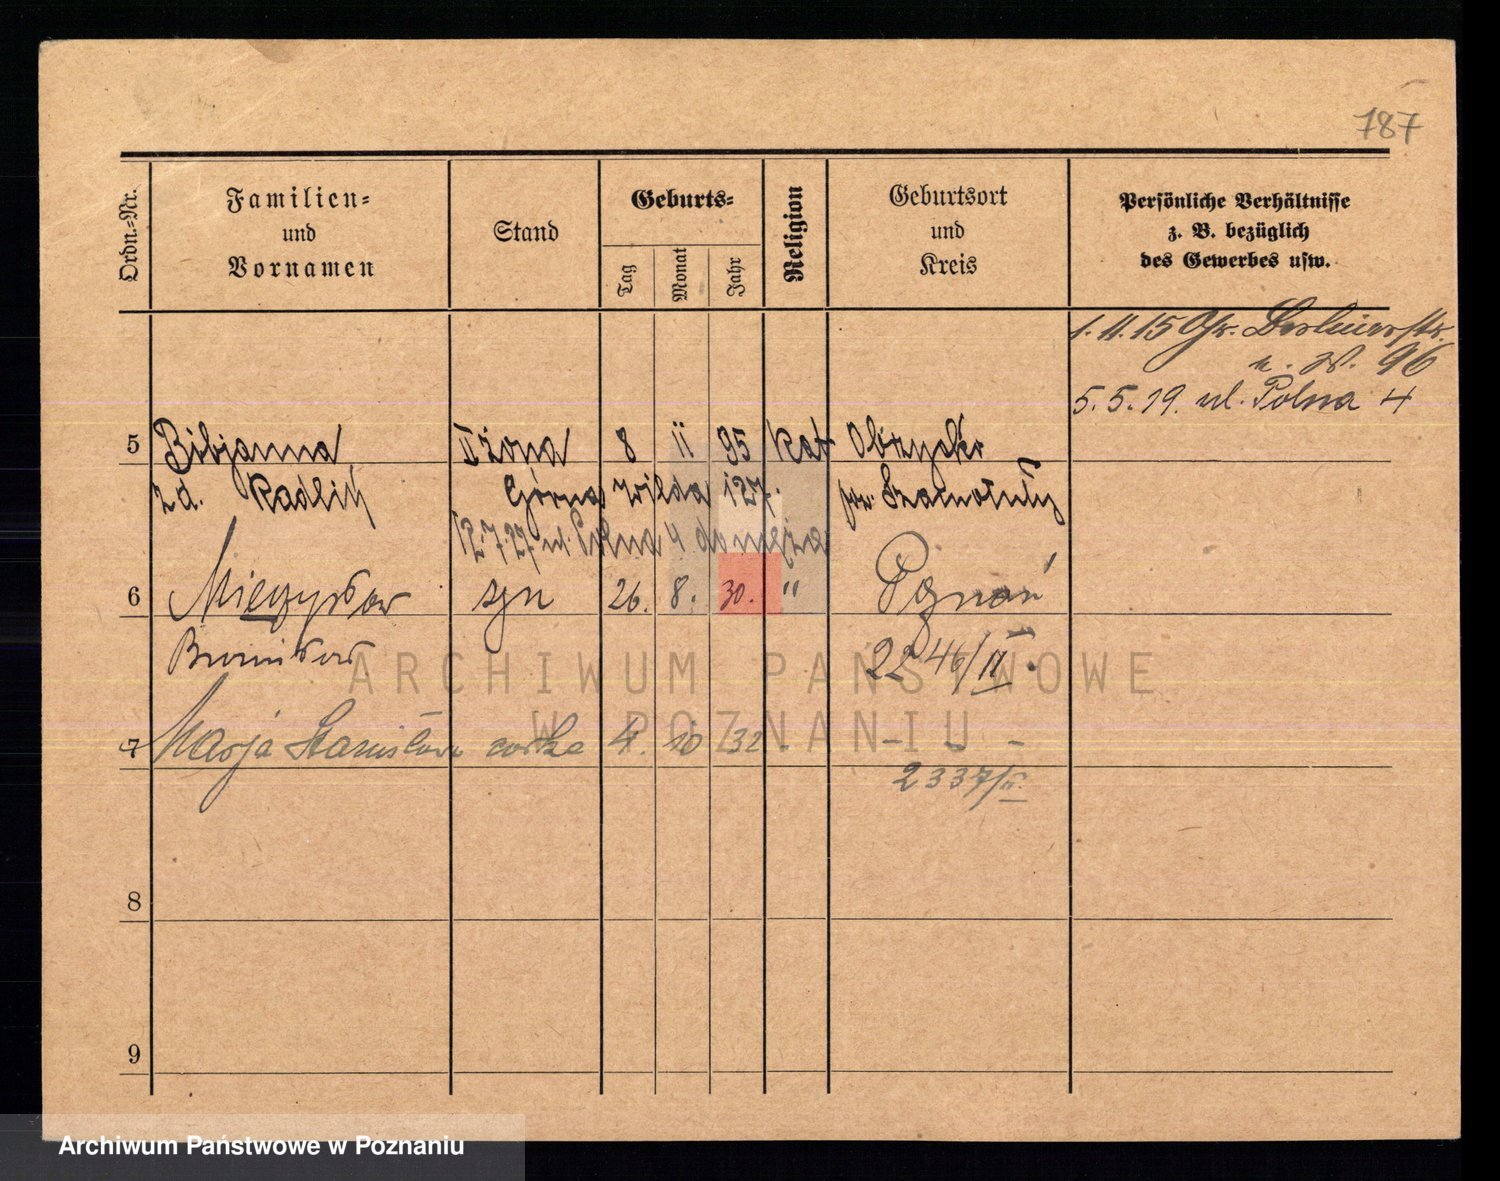 787
Ordn.=Nr.
Familien=
und
Vornamen
Stand
Geburts=
Tag
Monat
Jahr
Religion
Geburtsort
und
Kreis
Persönliche Verhältnisse
z. B. bezüglich
des Gewerbes usw.
1. 11. 15 Gr. Berlinerstr.
96
5. 5. 19. ul. Polna 4
5 Bibjanna II żona 8 11 95 kat Obrzycko
z d. Radlich Górna Wilda 127. pow. Szamotuły
12.7.27 ul. Polna 4
6 Mieczysław syn 26. 8. 30. " Poznań
Bronisław 2246/II.
7 Marja Stanisława córka 4. 10 32 - - - -
2337/II.
8
9
ARCHIWUM PAŃSTWOWE
W POZNANIU
Archiwum Państwowe w Poznaniu